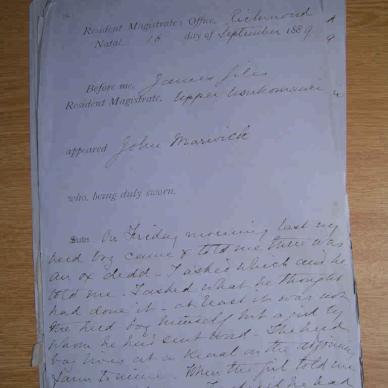 Resident Magistrate's Office, Richmond
Natal 16 day of September 1889
Before me, James Giles
Resident Magistrate, Upper Umkomanzi
appeared John Marwick
who, being duly sworn,
States On Friday morning last my
herd boy came & told me there was
an ox dead - I asked which and he
told me - I asked what he thought
had done it - at least it was not
the herd boy himself but a girl by
whom he had sent word. The herd
boy lives at a kraal on the adjoining
farm to mine. When the girl told me